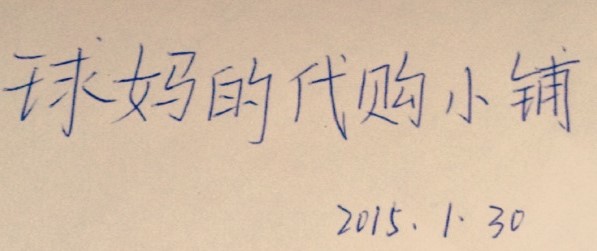 球妈的代购小铺
2015.1.30